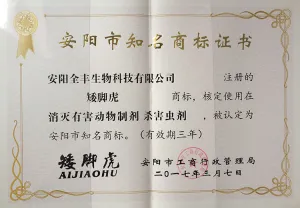 安阳市知名商标证书
安阳全丰生物科技有限公司 注册的
矮脚虎 商标，核定使用在
消灭有害动物制剂 杀害虫剂 ，被认定为
安阳市知名商标。（有效期三年）
矮脚虎
AIJIAOHU
安阳市工商行政管理局
二〇一七年三月七日